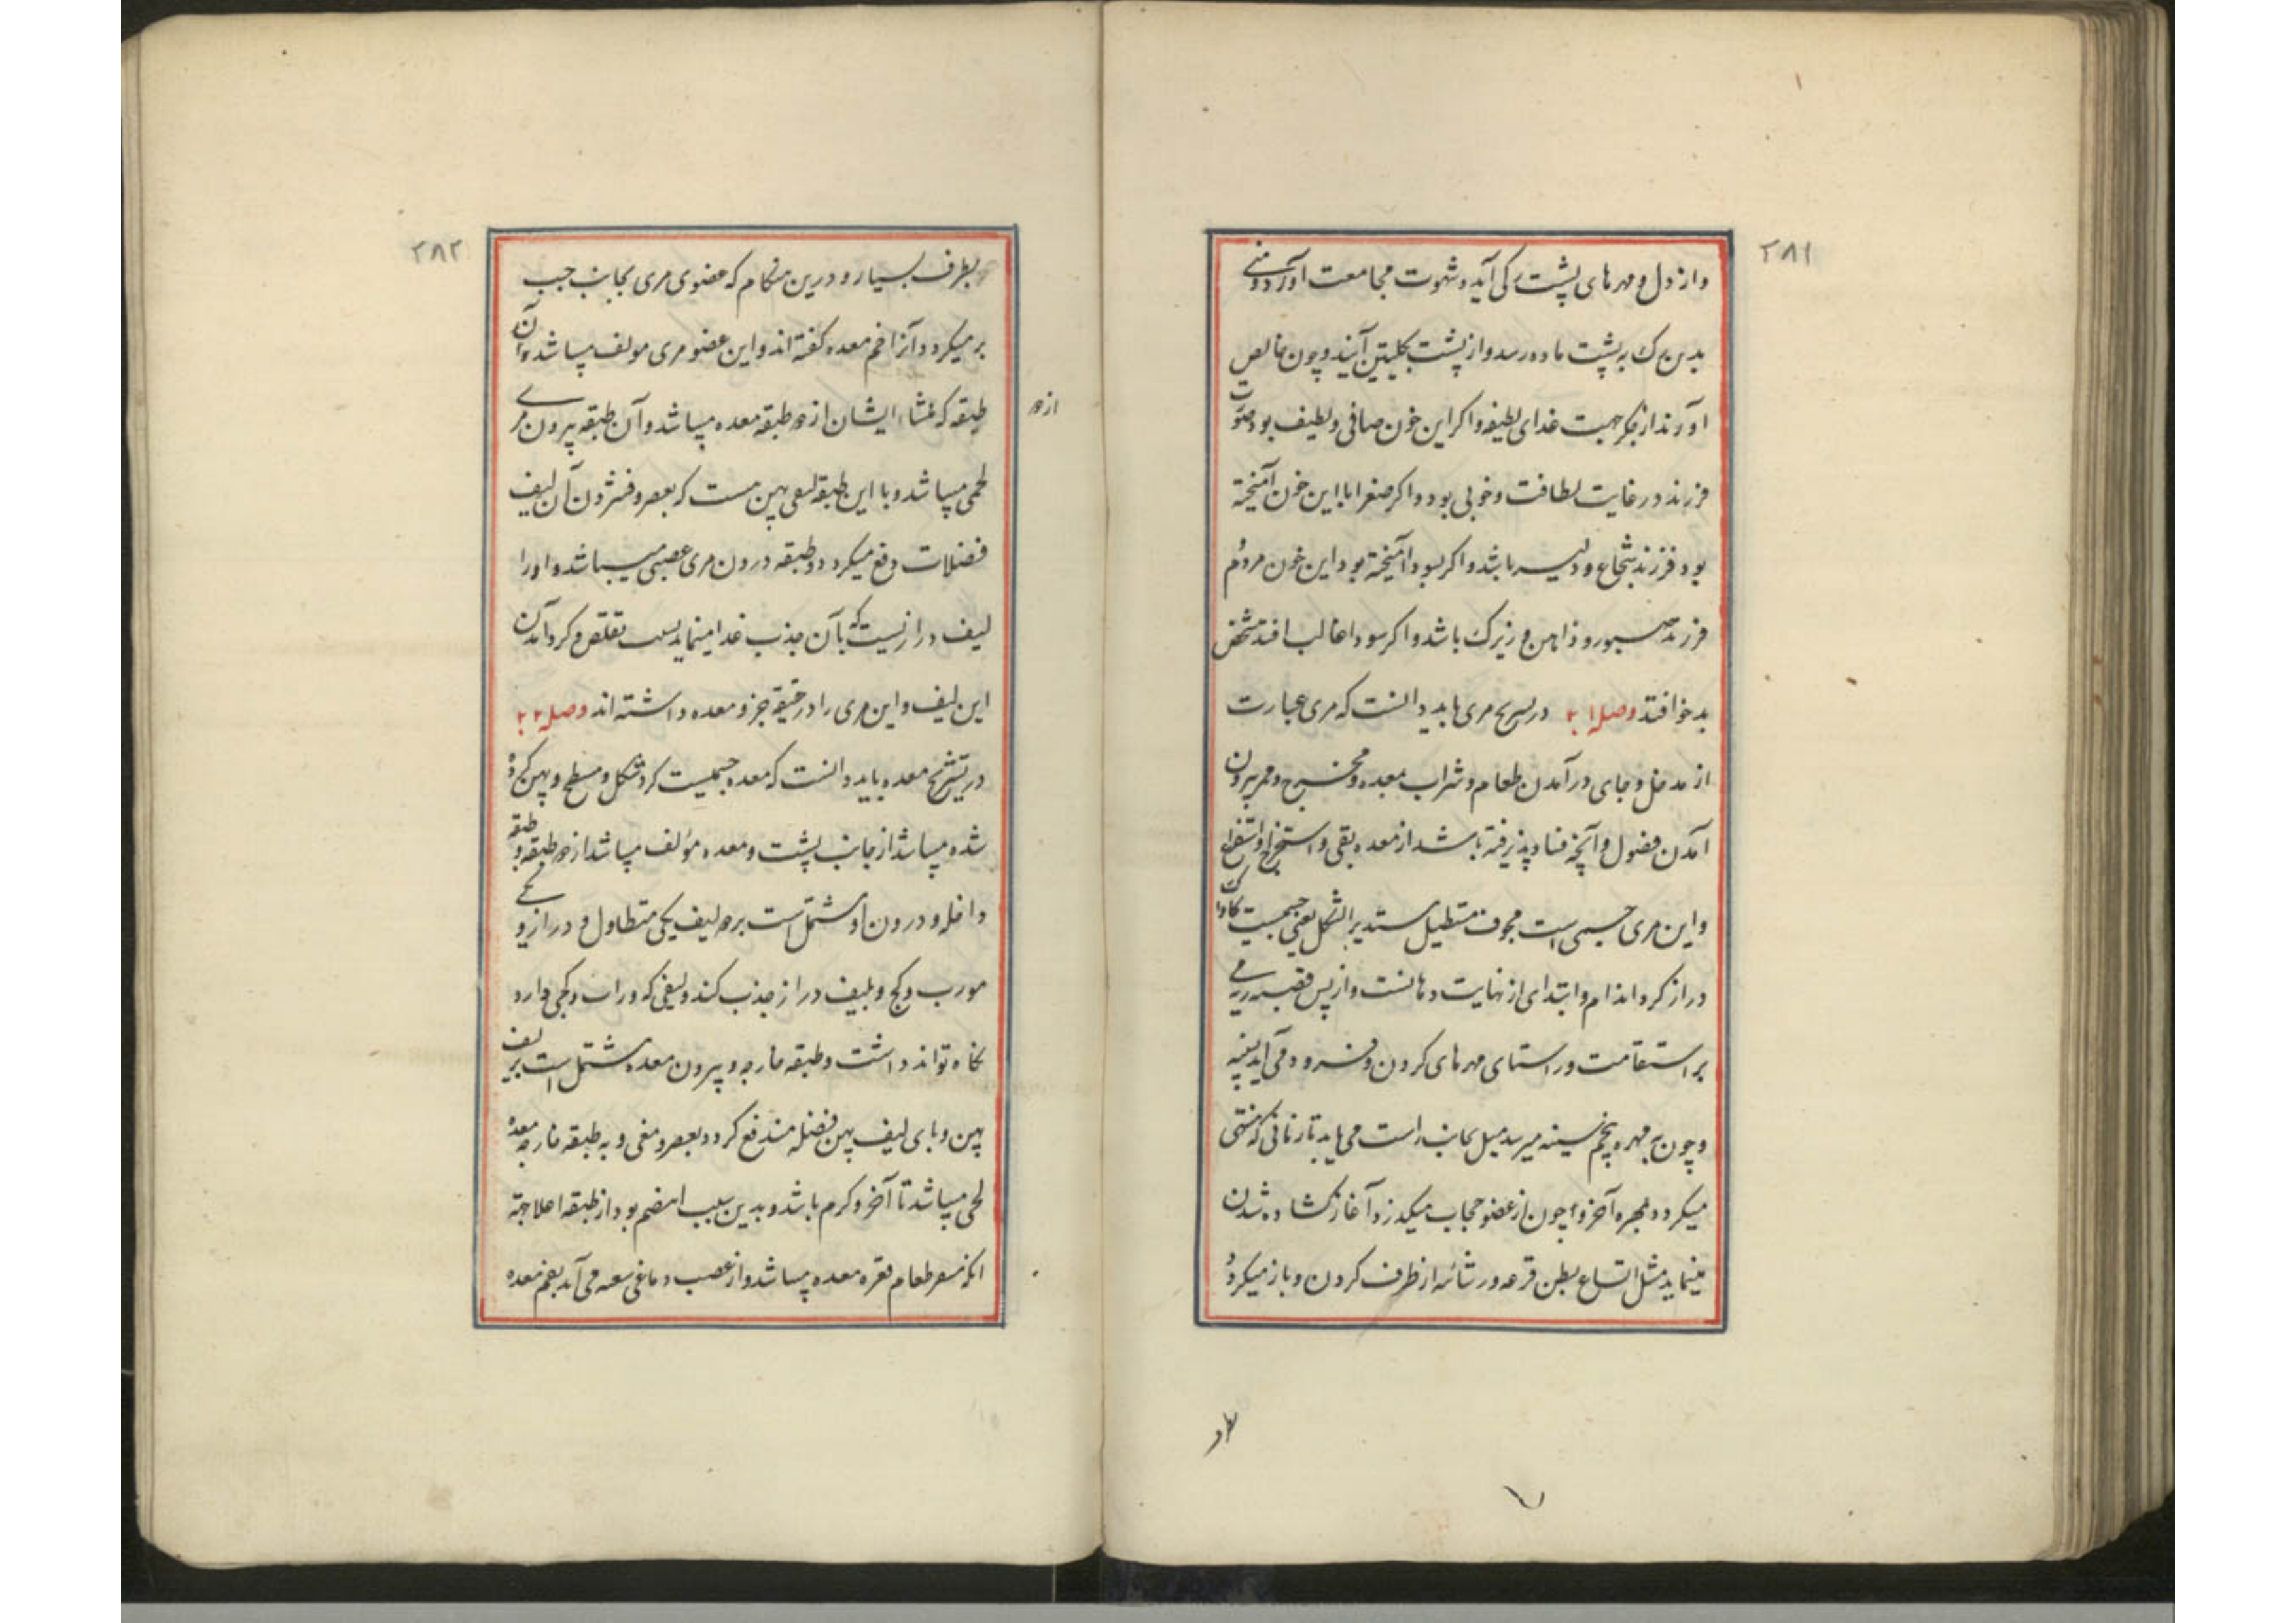 ۲۸۱
و از دل و مهرهای پشت رکی آید و شهوت مجامعت آورد و منی
بدین رک به پشت ماده رسد و از پشت بکلیتین آیند و چون خالص
آورند از جکر جهت غدای لطیفه و اکر این خون صافی و لطیف بود صوت
فرزند در غایت لطافت و خوبی بود و اکر صفرا با این خون آمیخته
بود فرزند شجاع و دلیر باشد و اکر بسودا آمیخته بود این خون مردم
فرزند صبور و ذاهن و زیرک باشد و اکر سودا غالب افتد شخص
بدخو افتد وصل ۲۱ در تشریح مری باید دانست که مری عبارت
از مدخل و جای درآمدن طعام و شراب بمعده و مخرج و ممر بیرون
آمدن فضول و آنچه فساد پذیرفته باشد از معده بقی و استخراج و استفراغ
و این مری جسمی است مجوف مستطیل مستدیر الشکل یعنی جسمیست کاواک
دراز کرد اندام و ابتدای از نهایت دهانست و از پس قصبه ریه می
بر استقامت و راستای مهرهای کردن و فرود می آید بسینه
و چون به مهره پنجم سینه میرسد میل بجانب راست می یابد تا زمانی که منتهی
میکردد بمهره آخر و چون از عضو حجاب میکذرد آغاز کشاده شدن
مینماید مثل اتساع بطن قرعه و رشائه از ظرف کردن و باز میکردد
۲۸۲
بطرف بسیار و درین هنکام که عضوی مری بجانب جب
بر میکردد و آنرا فم معده کفته اند و این عضو مری مولف میباشد و آن
طبقه که غشاء ایشان از دو طبقه معده میباشد و آن طبقه بیرون مری
از دو
لحمی میباشد و با این طبقه لیفی پهن هست که بعصر و فشردن آن لیف
فضلات دفع میکردد و طبقه درون مری عصبی میباشد و او را
لیف درازیست که بآن جذب غدا مینماید بسبب تقلص و کرد آمدن
این لیف و این مری را در حقیقة جزو معده داشته اند وصل ۲۲
در تشریح معده باید دانست که معده جسمیست کرد شکل و مسطح و پهن کرده
شده میباشد از جانب پشت و معده مؤلف میباشد از دو طبقه و طبقه
داخله و درون او مشتمل است بر دو لیف یکی متطاول و دراز و یکی
مورب و کج و بلیف دراز جذب کند و لیفی که وراب و کجی دارد
نکاه تواند داشت و طبقه خارجه و بیرون معده مشتمل است بر لیف
پهن و بای لیف پهن فضله مندفع کردد بعصر و مغی و به طبقه خارجه معده
لحمی میباشد تا آخر و کرم باشد و بدین سبب اهضم بود از طبقه اعلا جهة
انکه طعام قعره معده میباشد و از عصب دماغی می آید بفم معده